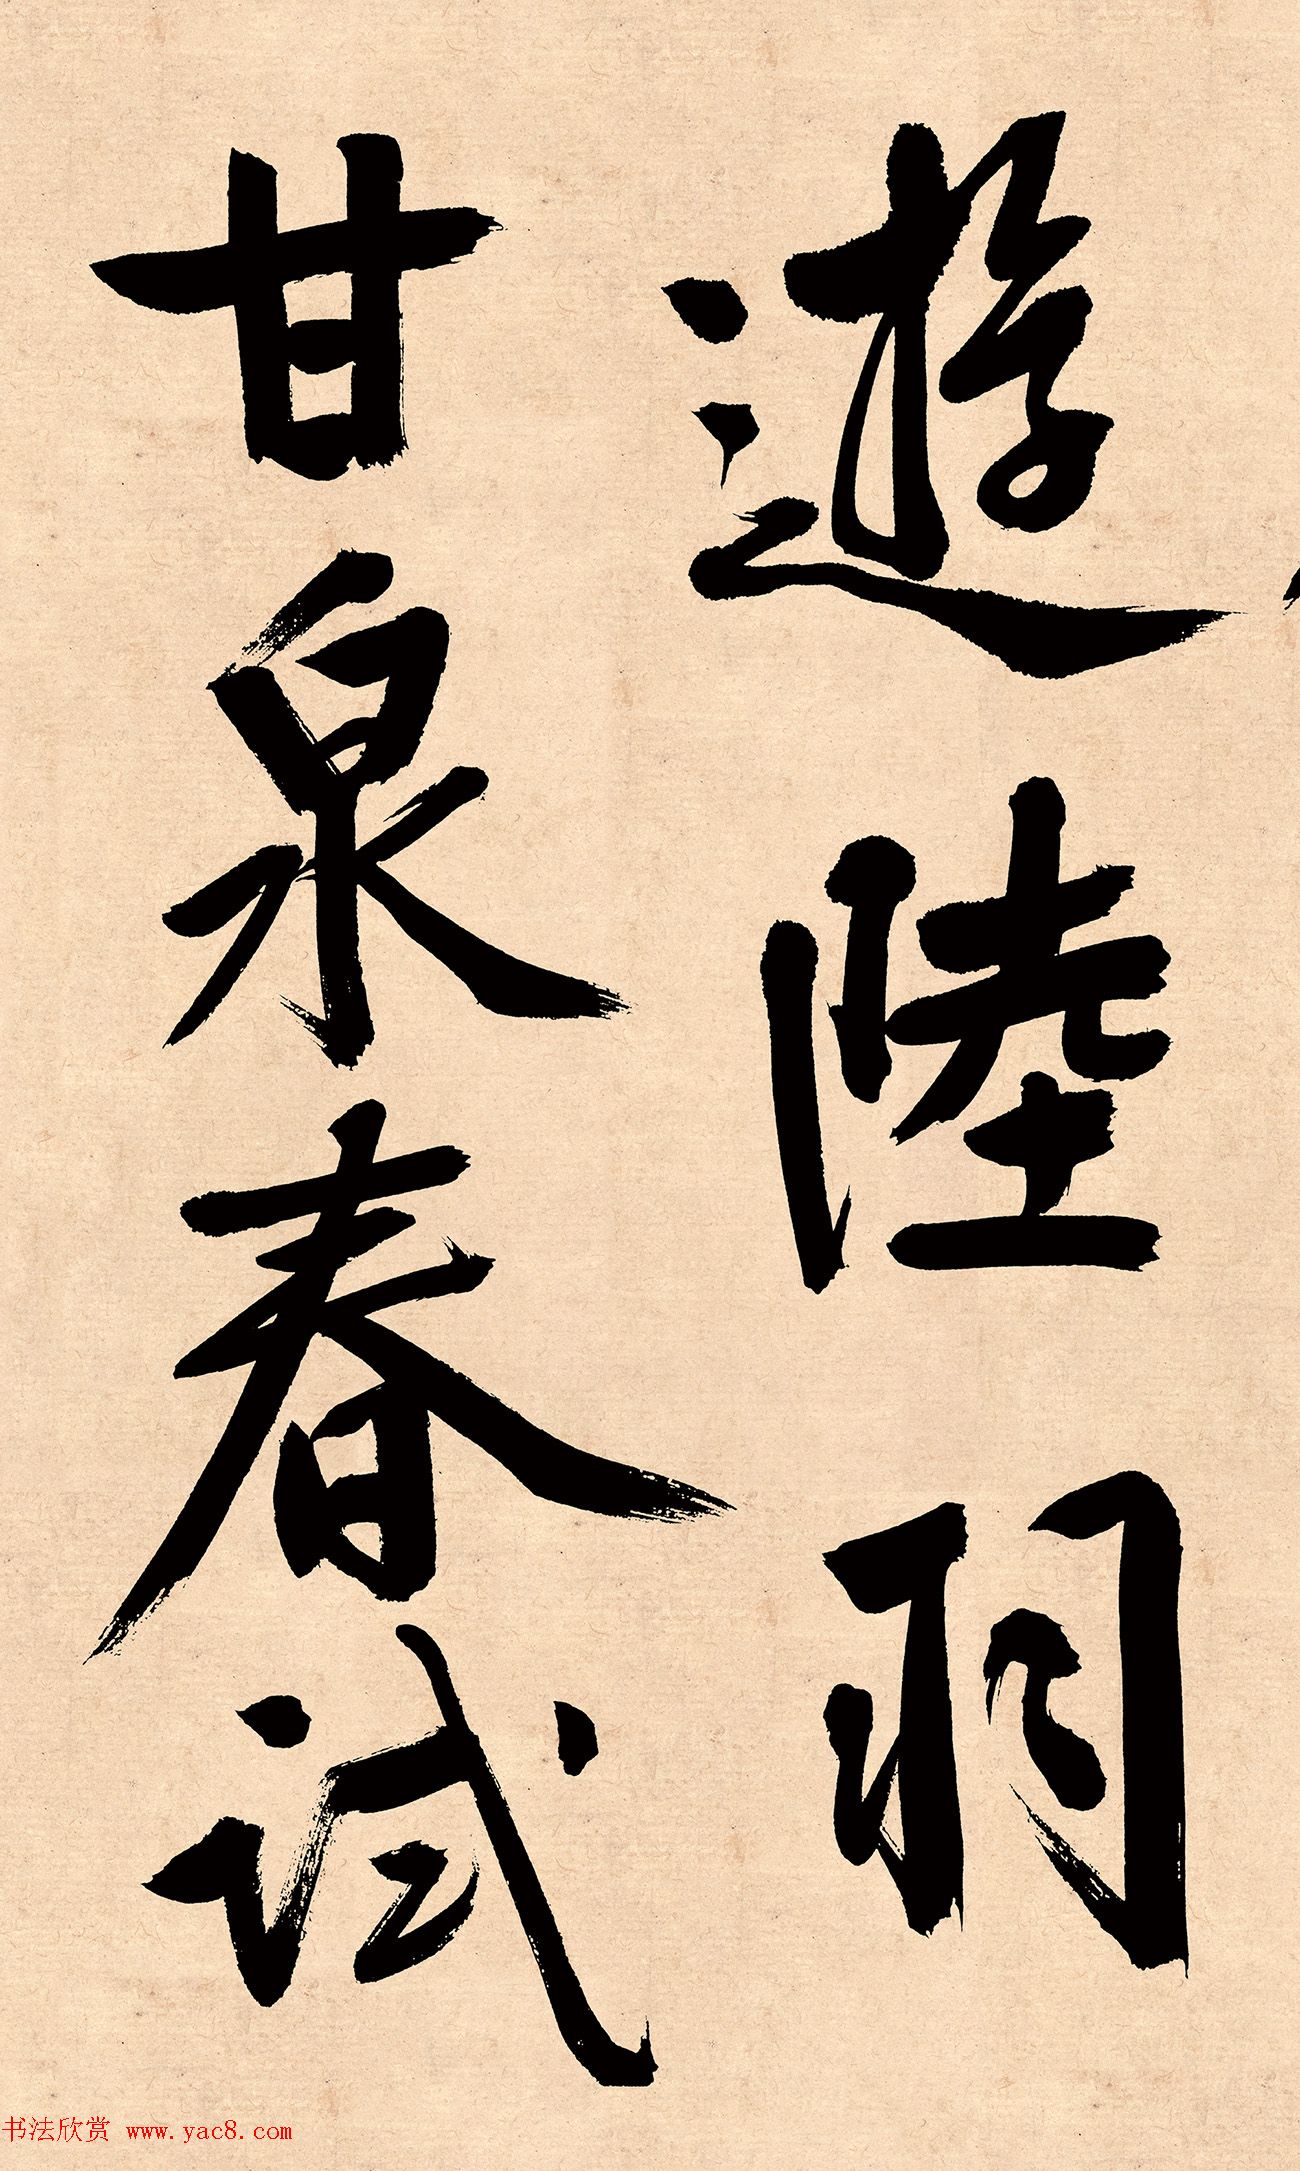 遊陸羽
甘泉春試
书法欣赏 www.yac8.com